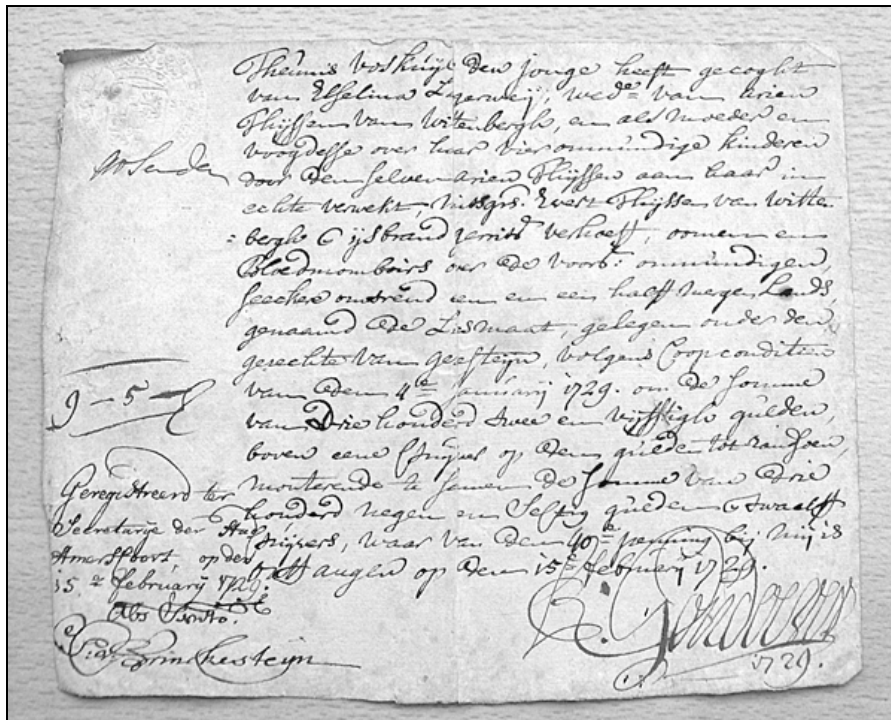 Theunis Voskuijl den jonge heeft gecoght
van Elselina Lagerweij, wede van Arien
Thijssen van Witenbergh, en als moeder en
voogdesse over haar vier onmundige kinderen
door den selven Arien Thijssen aan haar in
echte verwekt, mitsgrs. Evert Thijssen van Witten
= bergh & ijsbrand jerrits verhoeff, oomen en
Bloedmomboirs over de voorss: onmundigen,
seeckere omtrend een en een halff mergen Lands,
genaamd de Liesmaat, gelegen onder den
gerechte van geesteijn, volgens Coopconditien
van dem 4e januarij 1729. om de somme
van Drie honderd twee en vijfftigh gulden,
boven eene stuijver op dem gulden tot randsoen,
monterende te samen de somme van drie
honderd negen en sestig gulden & twaalff
stuijvers, waar van den 40e penning bij mij is
ontfangen op dem 15e februarij 1729.
9 - 5 -
Geregistreerd ter
Secretarije der Stad
Amersfoort, op den
15.e februarij 1729.
1729.